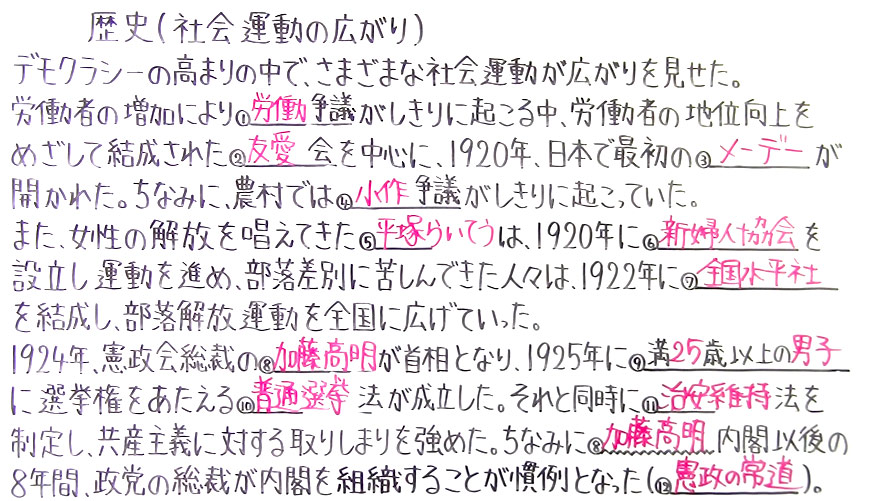 歴史(社会運動の広がり)
デモクラシーの高まりの中で、さまざまな社会運動が広がりを見せた。
労働者の増加により①労働争議がしきりに起こる中、労働者の地位向上を
めざして結成された②友愛会を中心に、1920年、日本で最初の③メーデーが
開かれた。ちなみに、農村では④小作争議がしきりに起こっていた。
また、女性の解放を唱えてきた⑤平塚らいてうは、1920年に⑥新婦人協会を
設立し運動を進め、部落差別に苦しんできた人々は、1922年に⑦全国水平社
を結成し、部落解放運動を全国に広げていった。
1924年、憲政会総裁の⑧加藤高明が首相となり、1925年に⑨満25歳以上の男子
に選挙権をあたえる⑩普通選挙法が成立した。それと同時に⑪治安維持法を
制定し、共産主義に対する取りしまりを強めた。ちなみに⑧加藤高明内閣以後の
8年間、政党の総裁が内閣を組織することが慣例となった(⑫憲政の常道)。